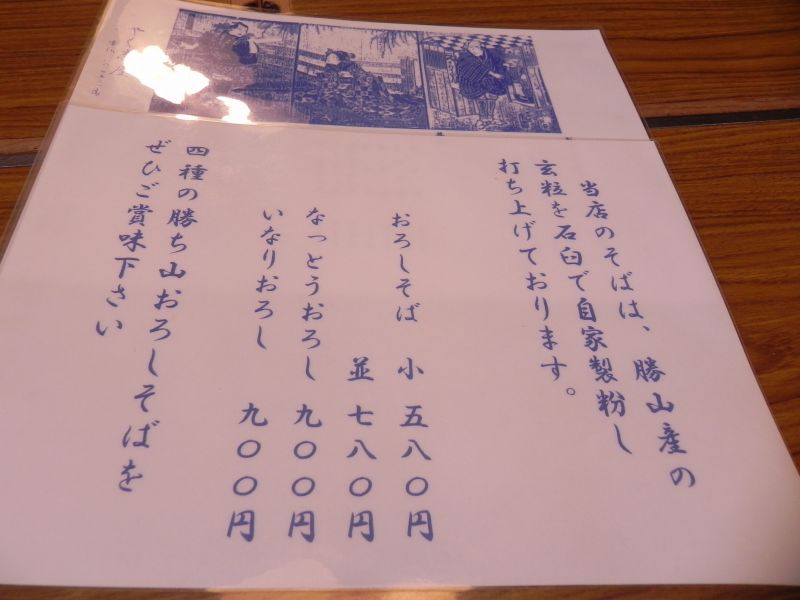 当店のそばは、勝山産の
玄粒を石臼で自家製粉し
打ち上げております。
おろしそば 小 五八〇円
並 七八〇円
なっとうおろし 九〇〇円
いなりおろし 九〇〇円
四種の勝ち山おろしそばを
ぜひご賞味下さい